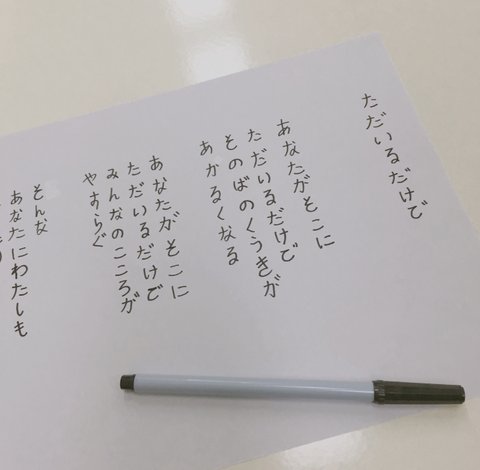 ただいるだけで
あなたがそこに
ただいるだけで
そのばのくうきが
あかるくなる
あなたがそこに
ただいるだけで
みんなのこころが
やすらぐ
そんな
あなたにわたしも